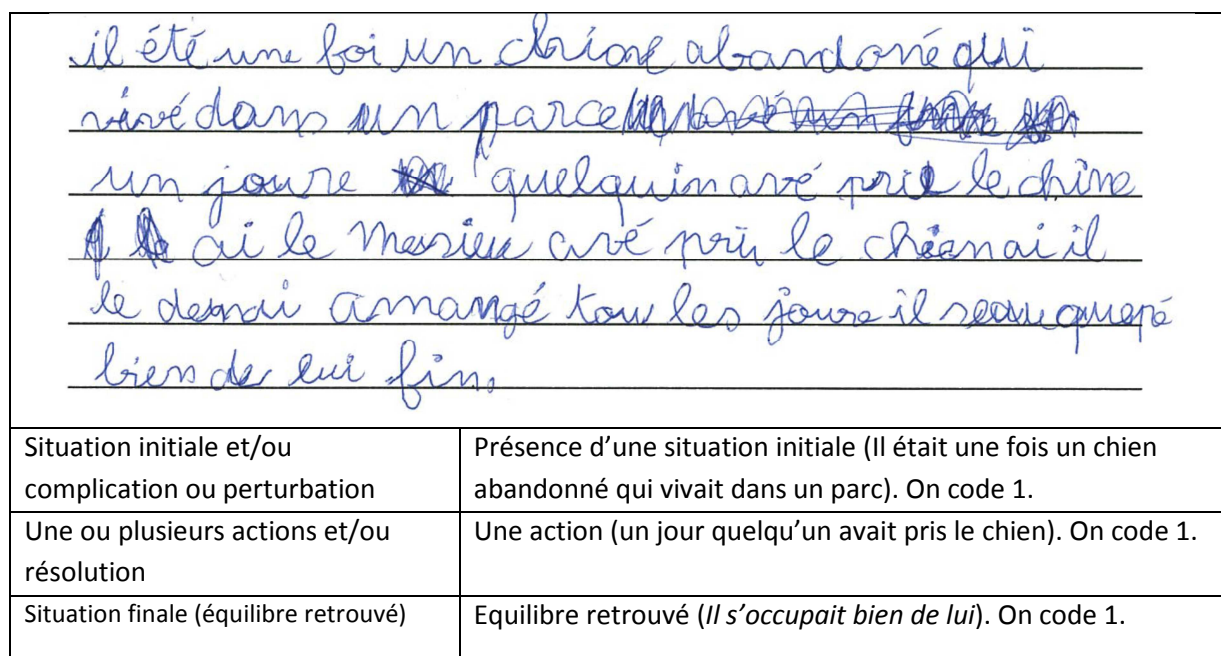 il été une foi un chione abandoné qui
vivé dans un parce
un joure quelquin avé pri le chine
ai le mesieu avé pri le chienai il
le donai amangé tou les joure il seauquepé
bien de lui fin.
Situation initiale et/ou
complication ou perturbation
Présence d’une situation initiale (Il était une fois un chien
abandonné qui vivait dans un parc). On code 1.
Une ou plusieurs actions et/ou
résolution
Une action (un jour quelqu’un avait pris le chien). On code 1.
Situation finale (équilibre retrouvé)
Equilibre retrouvé (Il s’occupait bien de lui). On code 1.